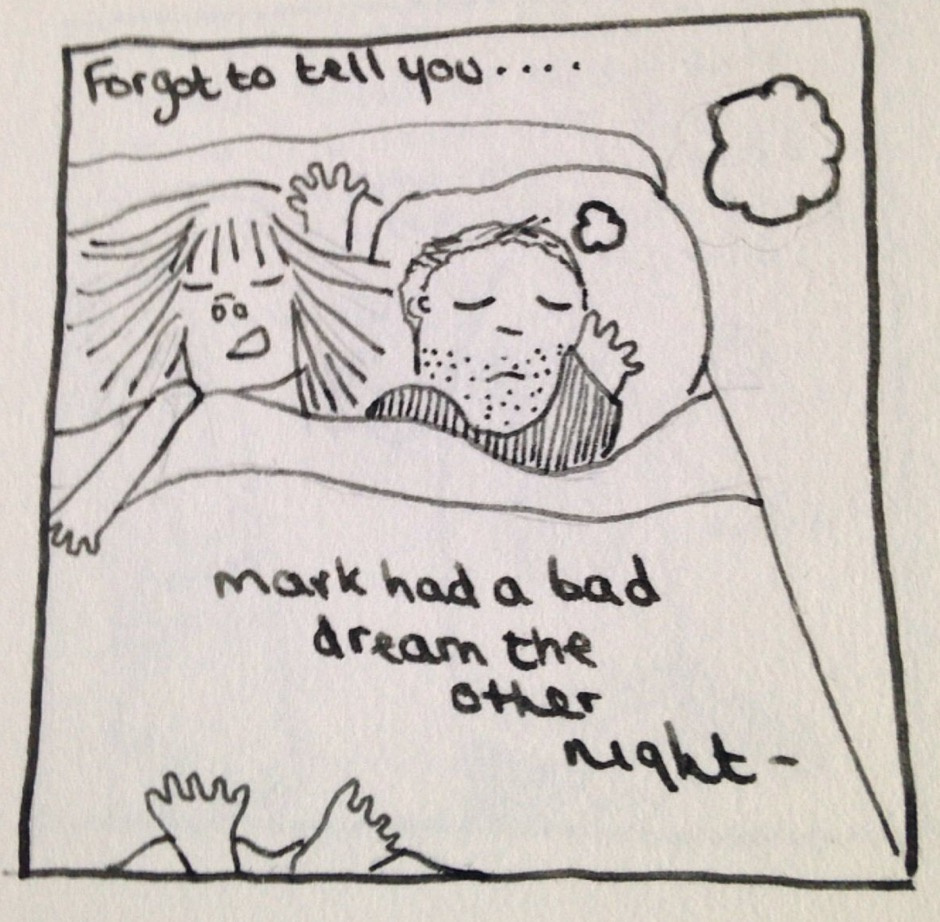 Forgot to tell you....
mark had a bad
dream the
other
night-